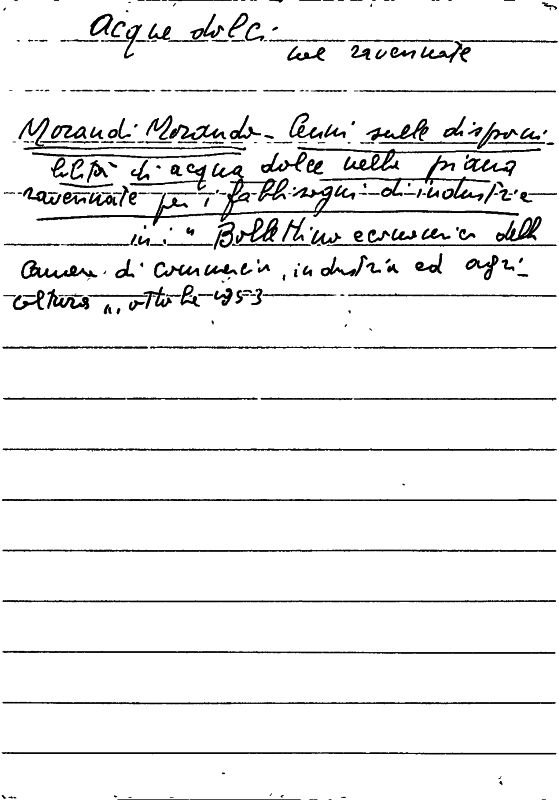 Acque dolci
nel ravennate
Morandi Morando - Cenni sulle disponi-
bilità di acqua dolce nella piana
ravennate per i fabbisogni di industrie
in: " Bollettino economico della
Camera di commercio, industria ed agri-
coltura ", ottobre 1953